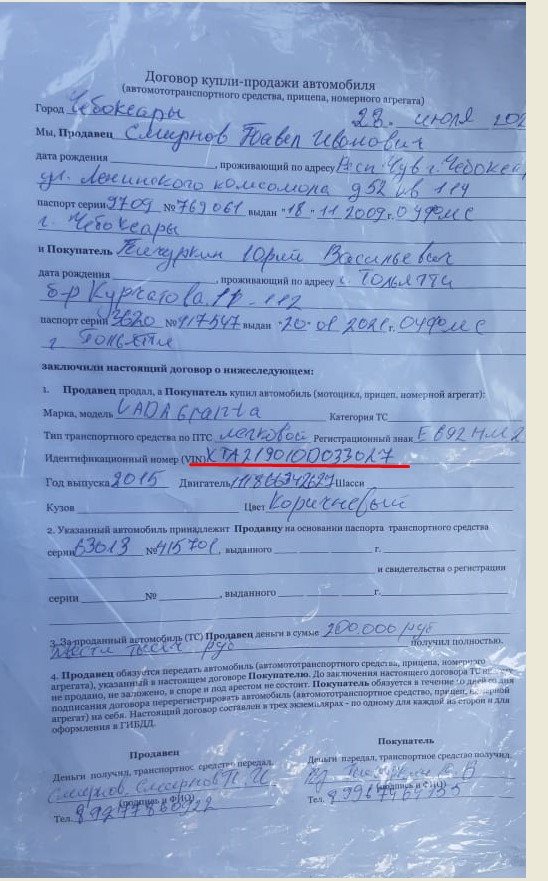 Договор купли-продажи автомобиля
(автомототранспортного средства, прицепа, номерного агрегата)
Город Чебоксары 28. июля 202
Мы, Продавец Смирнов Павел Иванович
дата рождения ____________, проживающий по адресу Респ. Чув г. Чебокса
ул. Ленинского комсомола д 52 кв 114
паспорт серии 9709 № 769061 выдан "18" 11.2009г. ОУФМС
г. Чебоксары
и Покупатель Юрий Васильевич
дата рождения ____________, проживающий по адресу г. Тольятти
б-р Курчатова 112
паспорт серии 3620 № 917547 выдан "20" 01 2021г. ОУФМС
г Тольятти
заключили настоящий договор о нижеследующем:
1. Продавец продал, а Покупатель купил автомобиль (мотоцикл, прицеп, номерной агрегат):
Марка, модель LADA Granta Категория ТС
Тип транспортного средства по ПТС легковой Регистрационный знак Е892НМ2
Идентификационный номер (VIN) XTA219010D0033027
Год выпуска 2015 Двигатель Шасси
Кузов Цвет Коричневый
2. Указанный автомобиль принадлежит Продавцу на основании паспорта транспортного средства
серии №415701, выданного г.
и свидетельства о регистрации
серии №, выданного г.
3. За проданный автомобиль (ТС) Продавец деньги в сумме 200.000 руб
двести тысяч руб получил полностью.
4. Продавец обязуется передать автомобиль (автомототранспортного средства, прицепа, номерного
агрегата), указанный в настоящем договоре Покупателю. До заключения настоящего договора ТС
не продано, не заложено, в споре и под арестом не состоит. Покупатель обязуется в течение 10 дней со дня
подписания договора перерегистрировать автомобиль (автомототранспортное средство, прицеп, номерной
агрегат) на себя. Настоящий договор составлен в трех экземплярах - по одному для каждой из сторон и для
оформления в ГИБДД.
Продавец Покупатель
Деньги получил, транспортное средство передал. Деньги передал, транспортное средство получил.
Смирнов, Смирнов П. И.
(подпись и ФИО) (подпись и ФИО)
Тел. Тел.